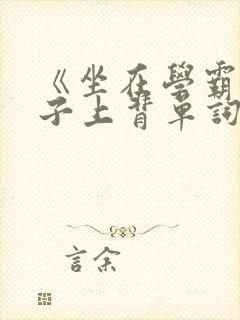 《坐在學霸
子上背單詞
言余